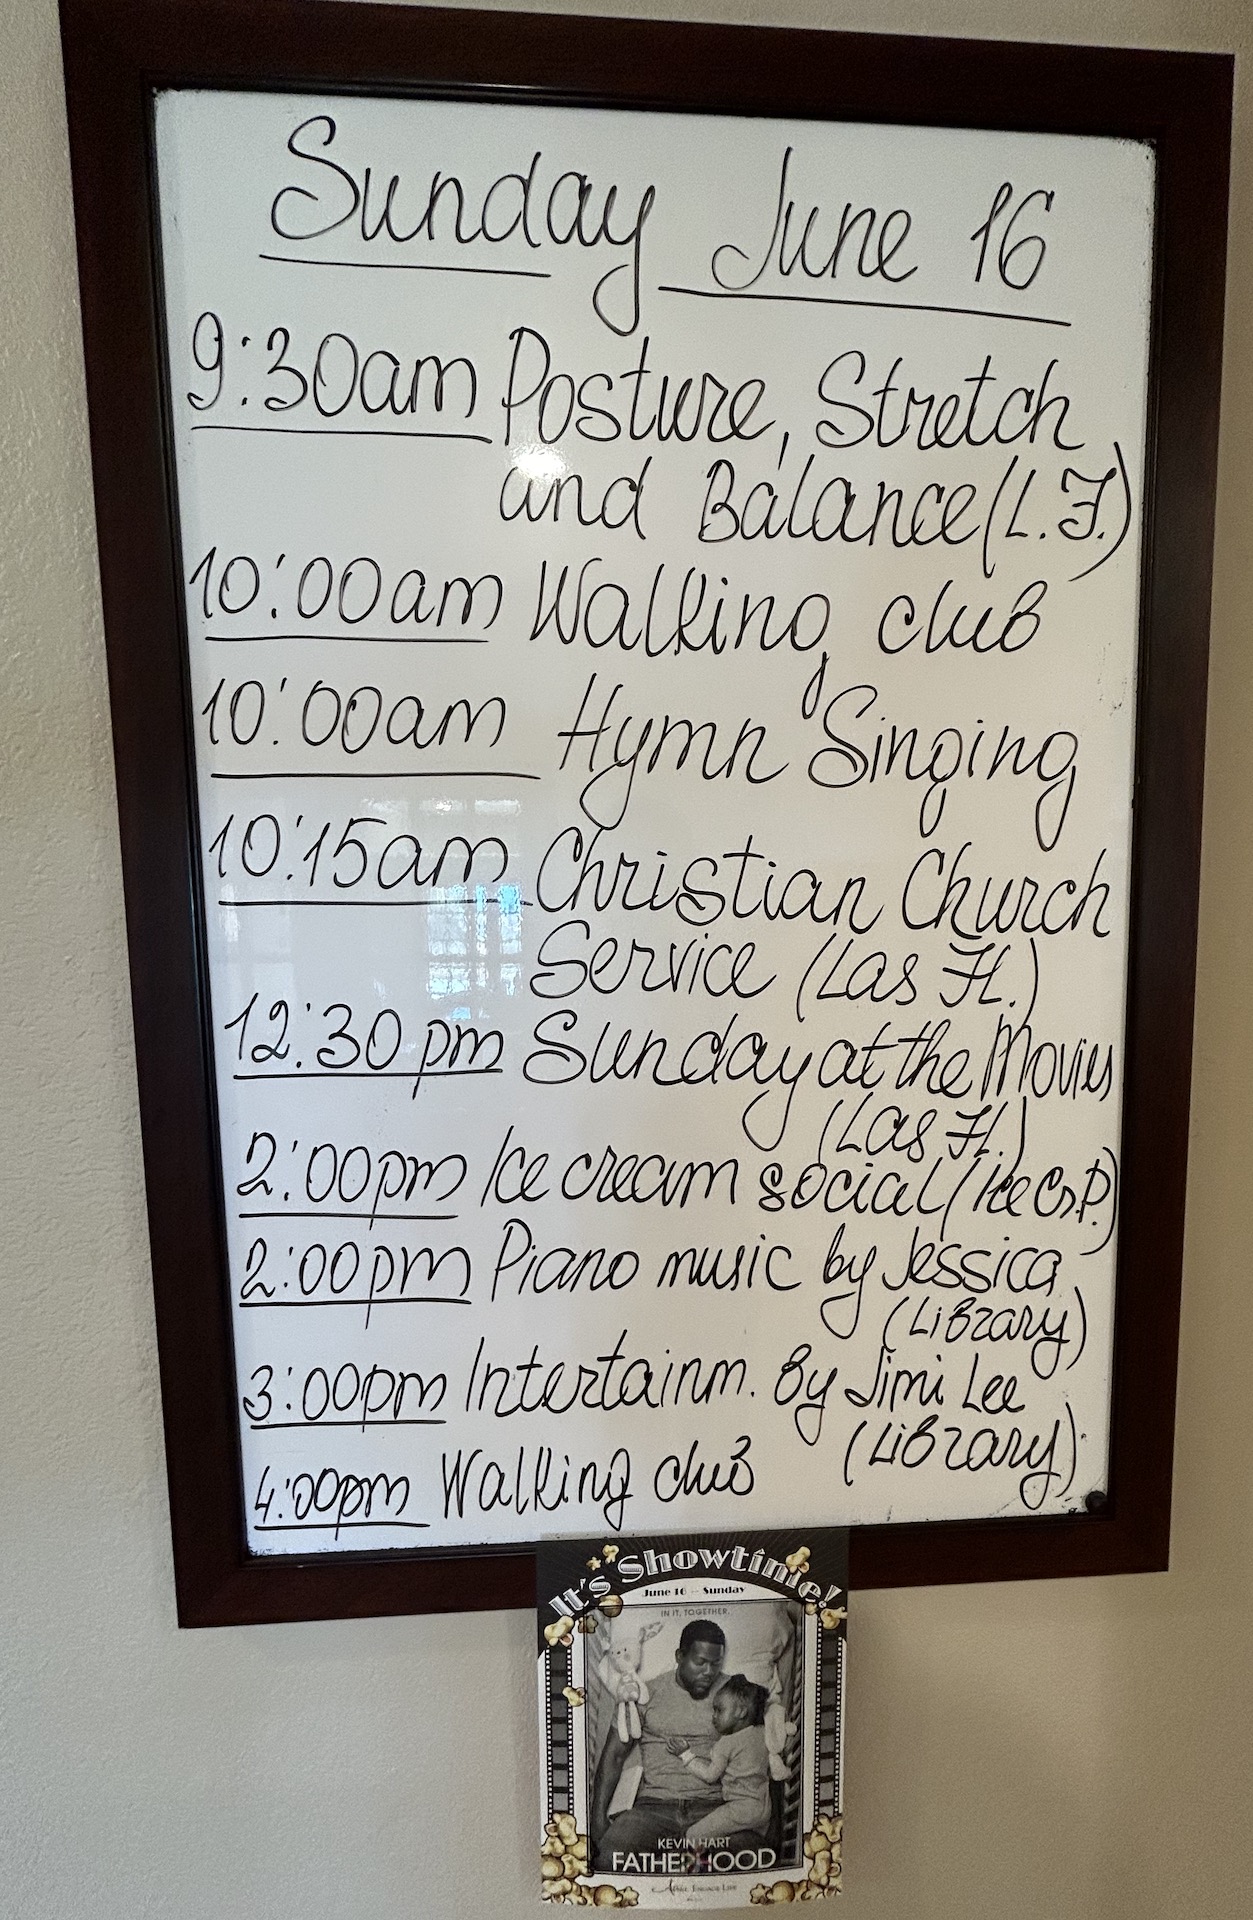 Sunday June 16
9:30am Posture, Stretch
and Balance (L.F.)
10:00am Walking club
10:00am Hymn Singing
10:15am Christian Church
Service (Las Fl.)
12:30pm Sunday at the Movies
(Las Fl.)
2:00pm Ice cream social (Ice Cr. P.)
2:00pm Piano music by Jessica
(Library)
3:00pm Intertainm. By Jimi Lee
(Library)
4:00pm Walking club
It's Showtime!
June 16 – Sunday
IN IT, TOGETHER.
KEVIN HART
FATHERHOOD